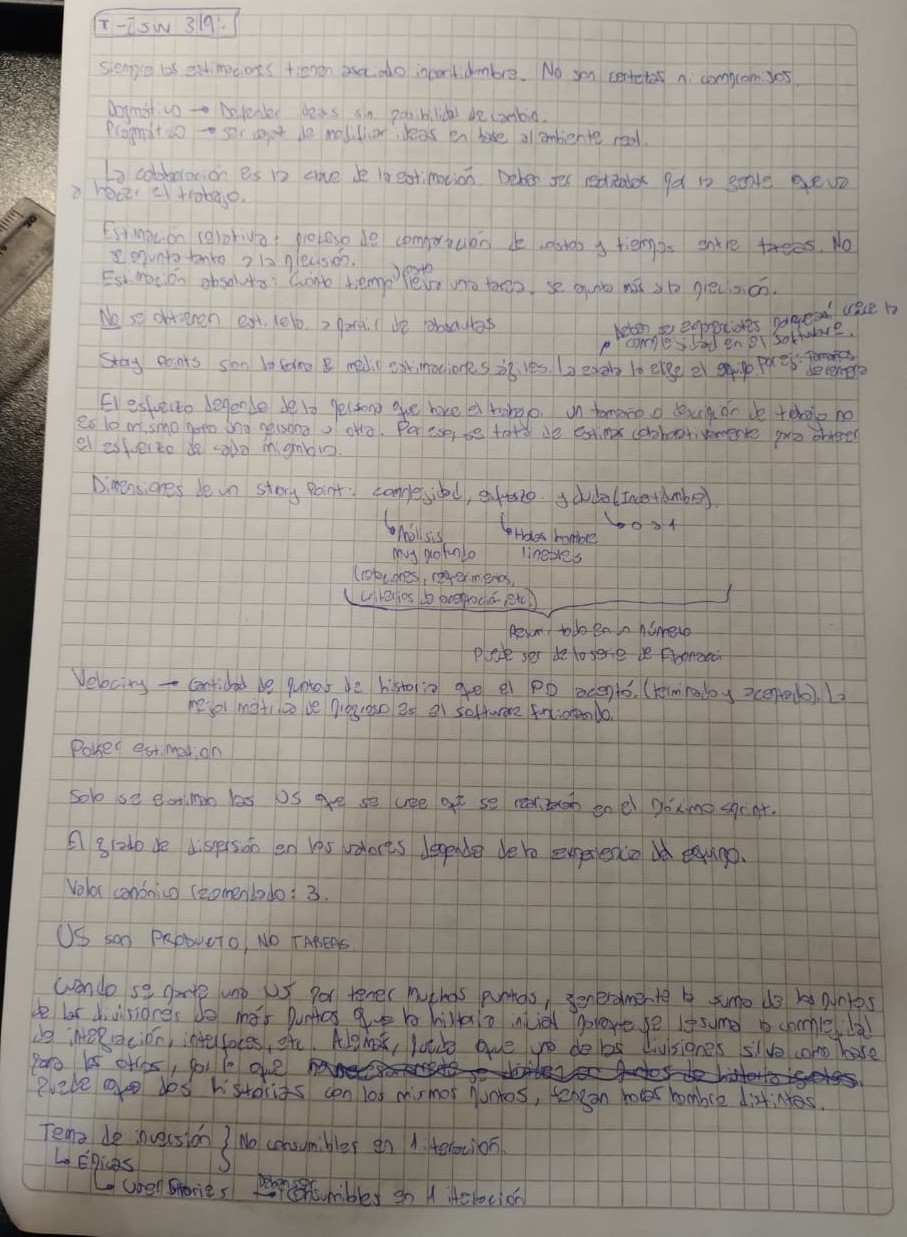 T - ISW 3/9:
Siempre las estimaciones tienen asociado incertidumbre. No son certezas ni compromisos.
Dogmático → Defender ideas sin posibilidad de cambio.
Pragmático → ser capaz de modificar ideas en base al ambiente real.
La colaboración es la clave de la estimación. Deben ser realizadas por la gente que va
a hacer el trabajo.
Estimación relativa: proceso de comparación de costos y tiempos entre tareas. No
se apunta tanto a la precisión.
Estimación absoluta: Cuánto tiempo/costo lleva una tarea, se apunta más a la precisión.
No se obtienen est. rela. a partir de absolutas
Deben ser exponenciales porque así crece la
complejidad en el software.
Story Points son la forma de medir estimaciones ágiles. La escala la elige el equipo
El esfuerzo depende de la persona que hace el trabajo. Un tamaño o duración de trabajo no
es lo mismo para una persona u otra. Por eso, se trata de estimar colaborativamente para obtener
el esfuerzo de cada miembro.
Dimensiones de un Story Point: complejidad, esfuerzo y duda (Incertidumbre).
↳ Análisis ↳ Horas hombre ↳ 0 a 1
muy profundo lineales
(relaciones,
criterios de aceptación, etc)
Resumir todo en un número
Puede ser de la serie de Fibonacci
Velocity → Cantidad de puntos de historia que el PO aceptó. (terminado y aceptado). La
mejor métrica de progreso es el software funcionando.
Poker estimation
Solo se estiman las US que se cree que se realizarán en el próximo sprint.
El grado de dispersión en los valores depende de la experiencia del equipo.
Valor canónico recomendado: 3.
US son PRODUCTO, NO TAREAS
Cuando se parte una US por tener muchos puntos, generalmente la suma de los puntos
de las divisiones da más puntos que la historia inicial porque se le suma la complejidad
de integración, interfaces, etc. Además, puede que una de las divisiones sirva como base
para las otras, por lo que
puede que dos historias con los mismos puntos, tengan horas hombre distintas.
Tema de inversión } No consumibles en 1 iteración.
↳ Épicas
↳ User Stories → Deben ser consumibles en 1 iteración